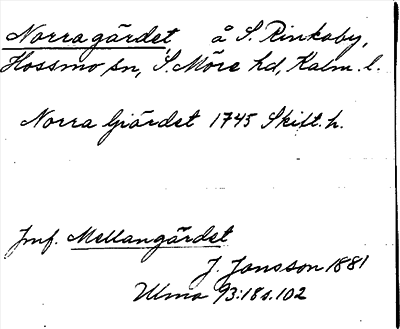 Norra gärdet, å S. Rinkaby,
Hossmo sn, S. Möre hd, Kalm. l.
Norra Giärdet 1745 Skift. h.
Jmf. Mellangärdet
J. Jansson 1881
Ulma 93:18 s. 102